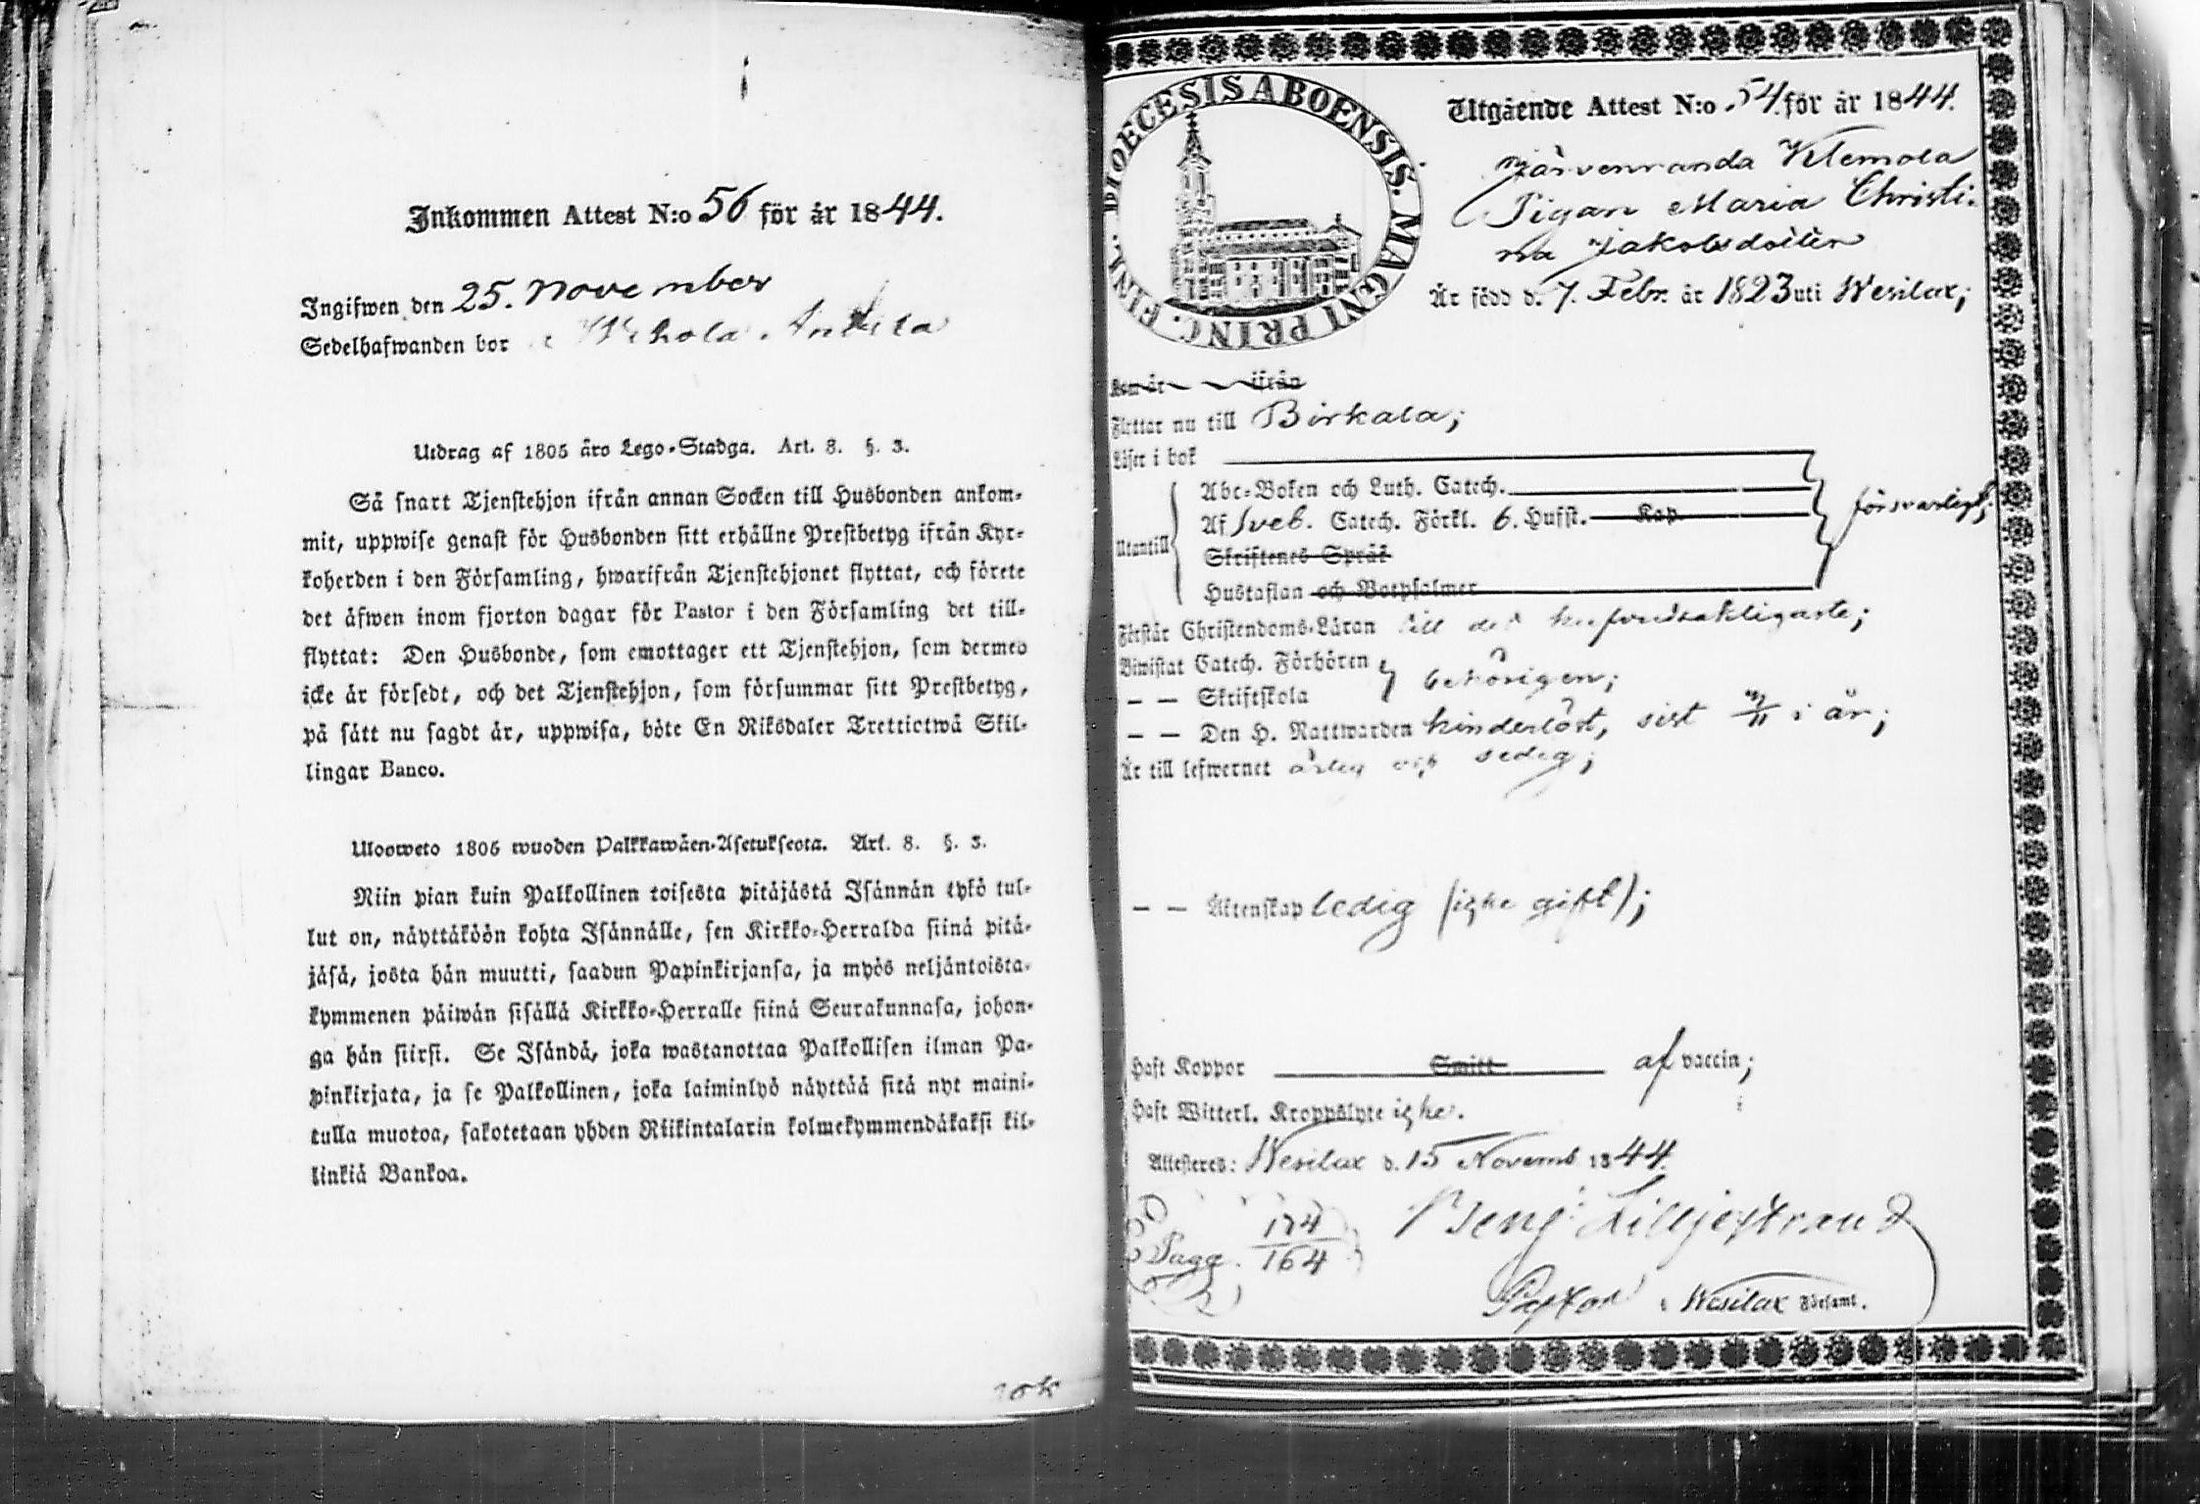 Inkommen Attest N:o 56 för år 1844.
Ingifwen den 25. November
Sedelhafwanden bor
Utdrag af 1805 åro Lego-Stadga. Art. 8. §. 3.
Så snart Tjenstehjon ifrån annan Socken till Husbonden ankom-
mit, uppwise genast för Husbonden sitt erhållne Prestbetyg ifrån Kyr-
koherden i den Församling, hwarifrån Tjenstehjonet flyttat, och förete
det äfwen inom fjorton dagar för Pastor i den Församling det till-
flyttat: Den Husbonde, som emottager ett Tjenstehjon, som dermed
icke är försedt, och det Tjenstehjon, som försummar sitt Prestbetyg,
på sätt nu sagdt är, uppwisa, böte En Riksdaler Trettiotwå Skil-
lingar Banco.
Ulosweto 1805 wuoden Palkkawäen-Asetuksesta. Art. 8. §. 3.
Niin pian kuin Palkollinen toisesta pitäjästä Isännän tykö tul-
lut on, näyttäköön kohta Isännälle, sen Kirkko-Herralda siinä pitä-
jäsä, josta hän muutti, saadun Papinkirjansa, ja myös neljäntoista-
kymmenen päiwän sisällä Kirkko-Herralle siinä Seurakunnasa, johon-
ga hän siirsi. Se Isändä, joka wastanottaa Palkollisen ilman Pa-
pinkirjata, ja se Palkollinen, joka laiminlyö näyttää sitä nyt maini-
tulla muotoa, sakotetaan yhden Riikintalarin kolmekymmendäkaksi kil-
linkiä Bankoa.
DIOECESIS ABOENSIS. MAGNI PRINC. FINL.
Utgående Attest N:o 54. för år 1844.
Järvenranda Klemola
Pigan Maria Christi-
na Jakobsdotter
Är född d. 7. Febr. år 1823 uti Wesilax;
Kom år ifrån
Flyttar nu till Birkala;
Läser i bok
Utantill
Abc-Boken och Luth. Catech.
Af Sveb. Catech. Förkl. 6. Hufst. Kap.
Skriftenes Språk
Hustaflan och Botpsalmer
försvarligt;
Förstår Christendoms-Läran till det hufvudsakligaste;
Biwistat Catech. Förhören
— — Skriftskola
behörigen;
— — Den H. Nattwarden hinderlöst, sist i år;
Är till lefwernet ärlig och sedig;
— — Äktenskap ledig (icke gift);
Haft Koppor Smitt af vaccin;
Haft Witterl. Kroppslyte icke.
Attesteres: Wesilax d. 15 Novemb 1844.
Pagg. 174
164
Benj. Lilljestrand
Pastor i Wesilax Församl.